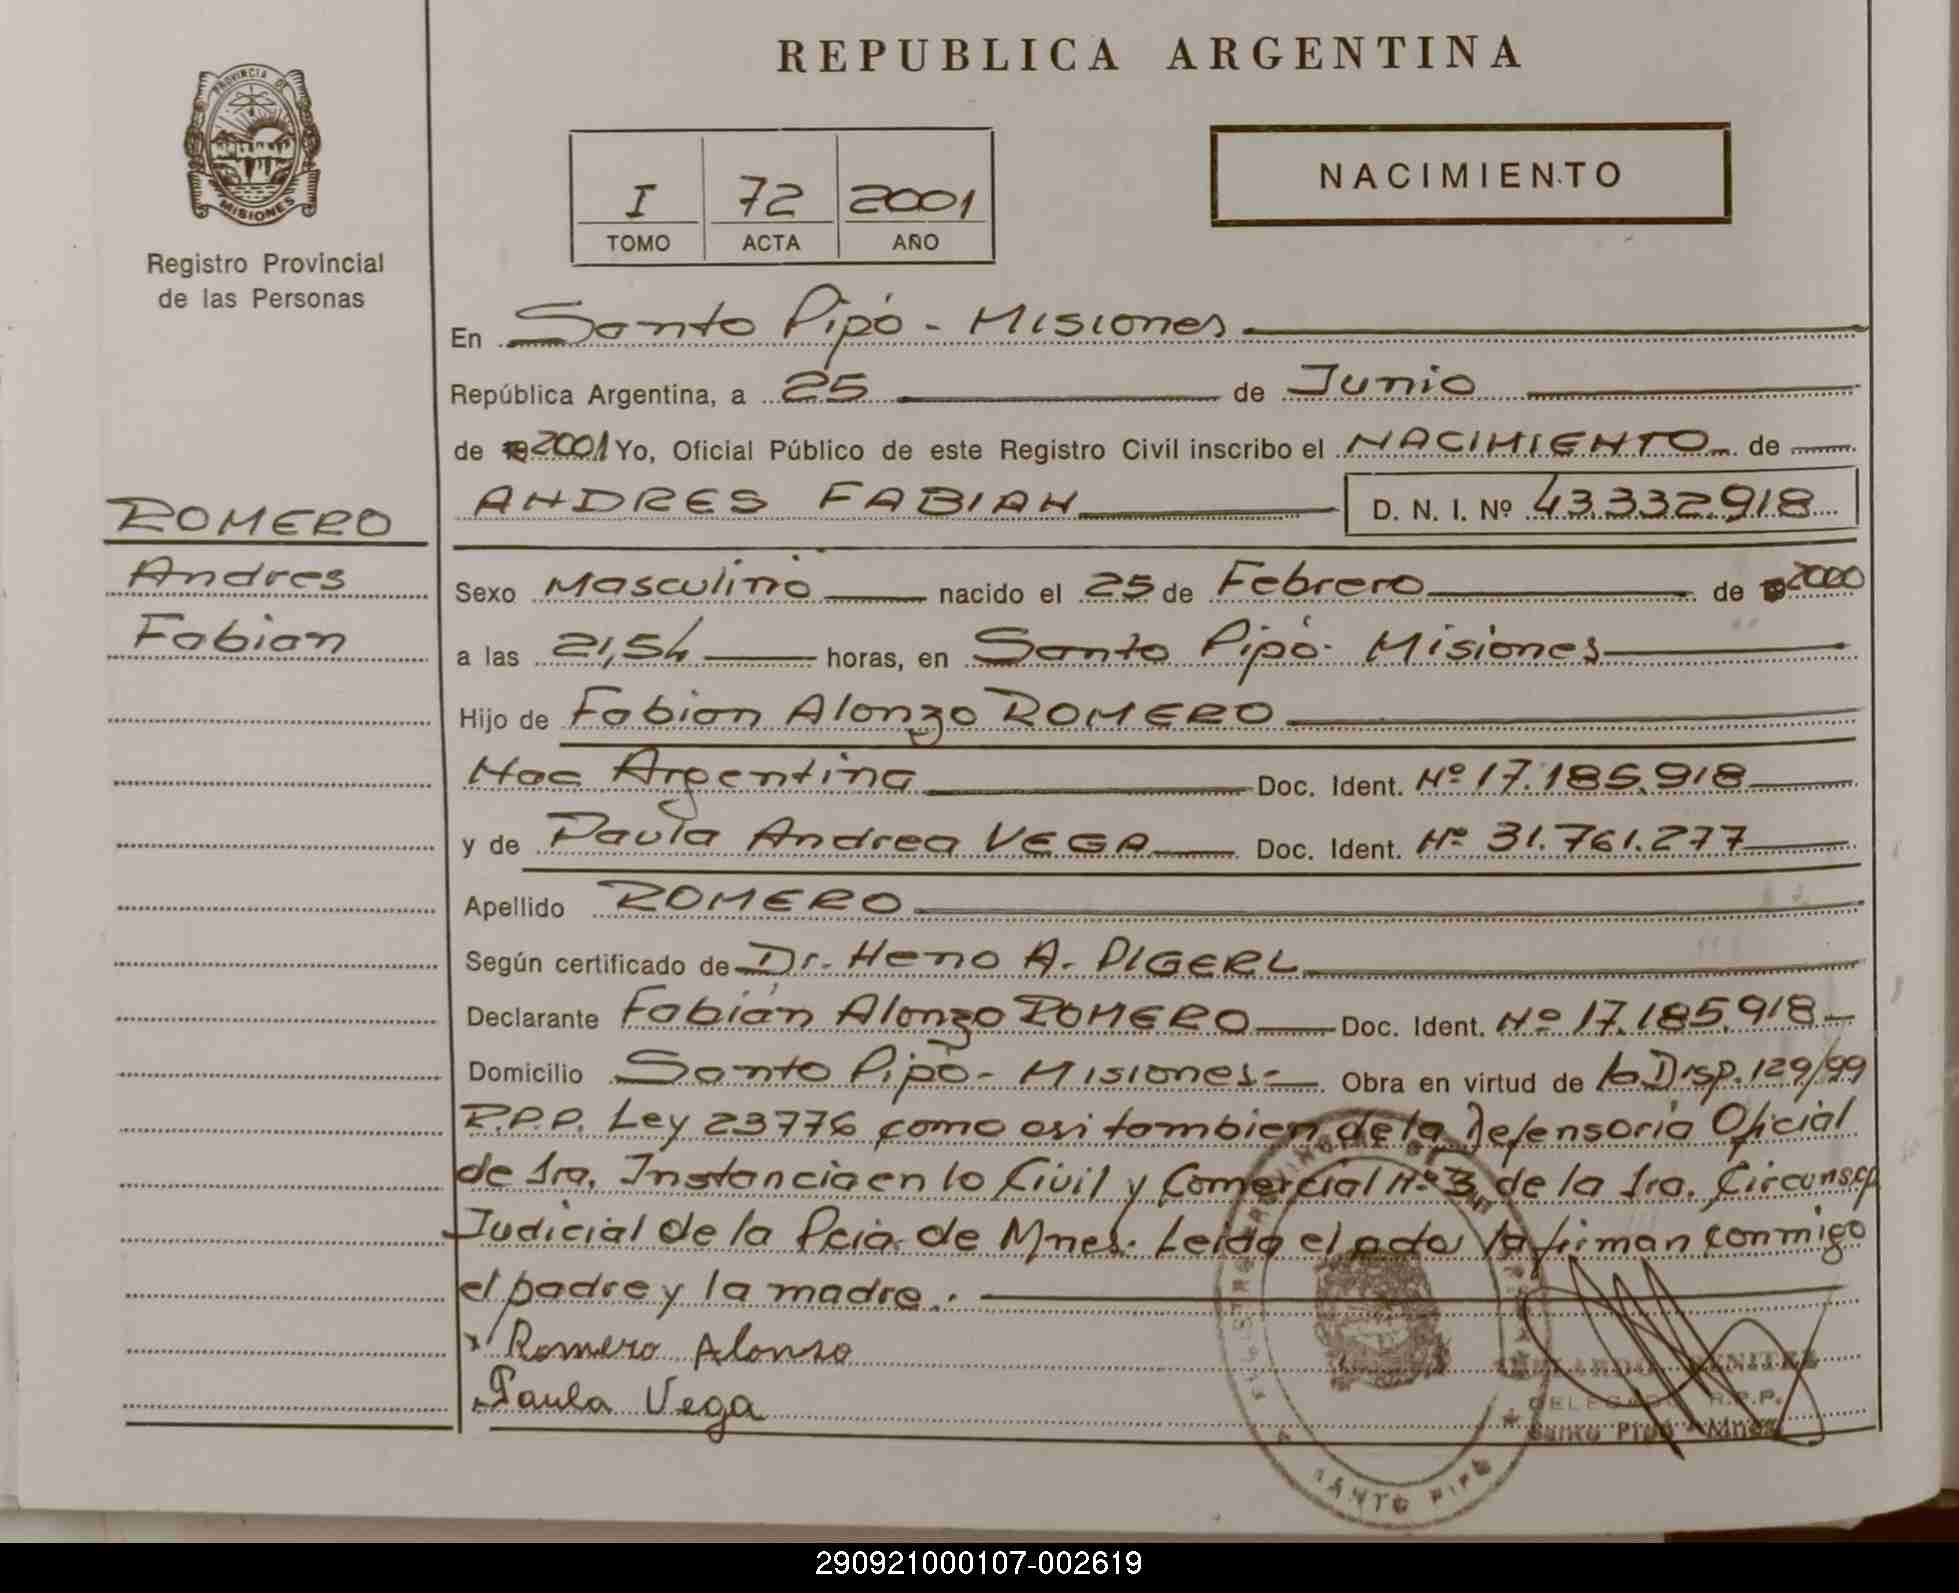 REPUBLICA ARGENTINA
PROVINCIA DE
MISIONES
Registro Provincial
de las Personas
I 72 2001
TOMO ACTA AÑO
NACIMIENTO
En Santo Pipó - Misiones
República Argentina, a 25 de Junio
de 2001 Yo, Oficial Público de este Registro Civil inscribo el NACIMIENTO de
ROMERO
Andres
Fabian
ANDRES FABIAN D. N. I. Nº 43.332.918
Sexo Masculino nacido el 25 de Febrero de 2000
a las 21,54 horas, en Santo Pipó - Misiones
Hijo de Fabian Alonzo ROMERO
Nac Argentina Doc. Ident. Nº 17.185.918
y de Paula Andrea VEGA Doc. Ident. Nº 31.761.277
Apellido ROMERO
Según certificado de Dr. Heno A. PIGERL
Declarante Fabián Alonzo ROMERO Doc. Ident. Nº 17.185.918
Domicilio Santo Pipó - Misiones - Obra en virtud de la Disp. 129/99
R.P.P. Ley 23776 como asi tambien de la Defensoria Oficial
de 1ra. Instancia en lo Civil y Comercial Nº 3 de la 1ra. Circunscp
Judicial de la Pcia de Mnes. Leida el acta, la firman conmigo
el padre y la madre.
x Romero Alonso
Paula Vega
DELEGADO R.P.P.
Santo Pipó - Mnes
SANTO PIPÓ
290921000107-002619